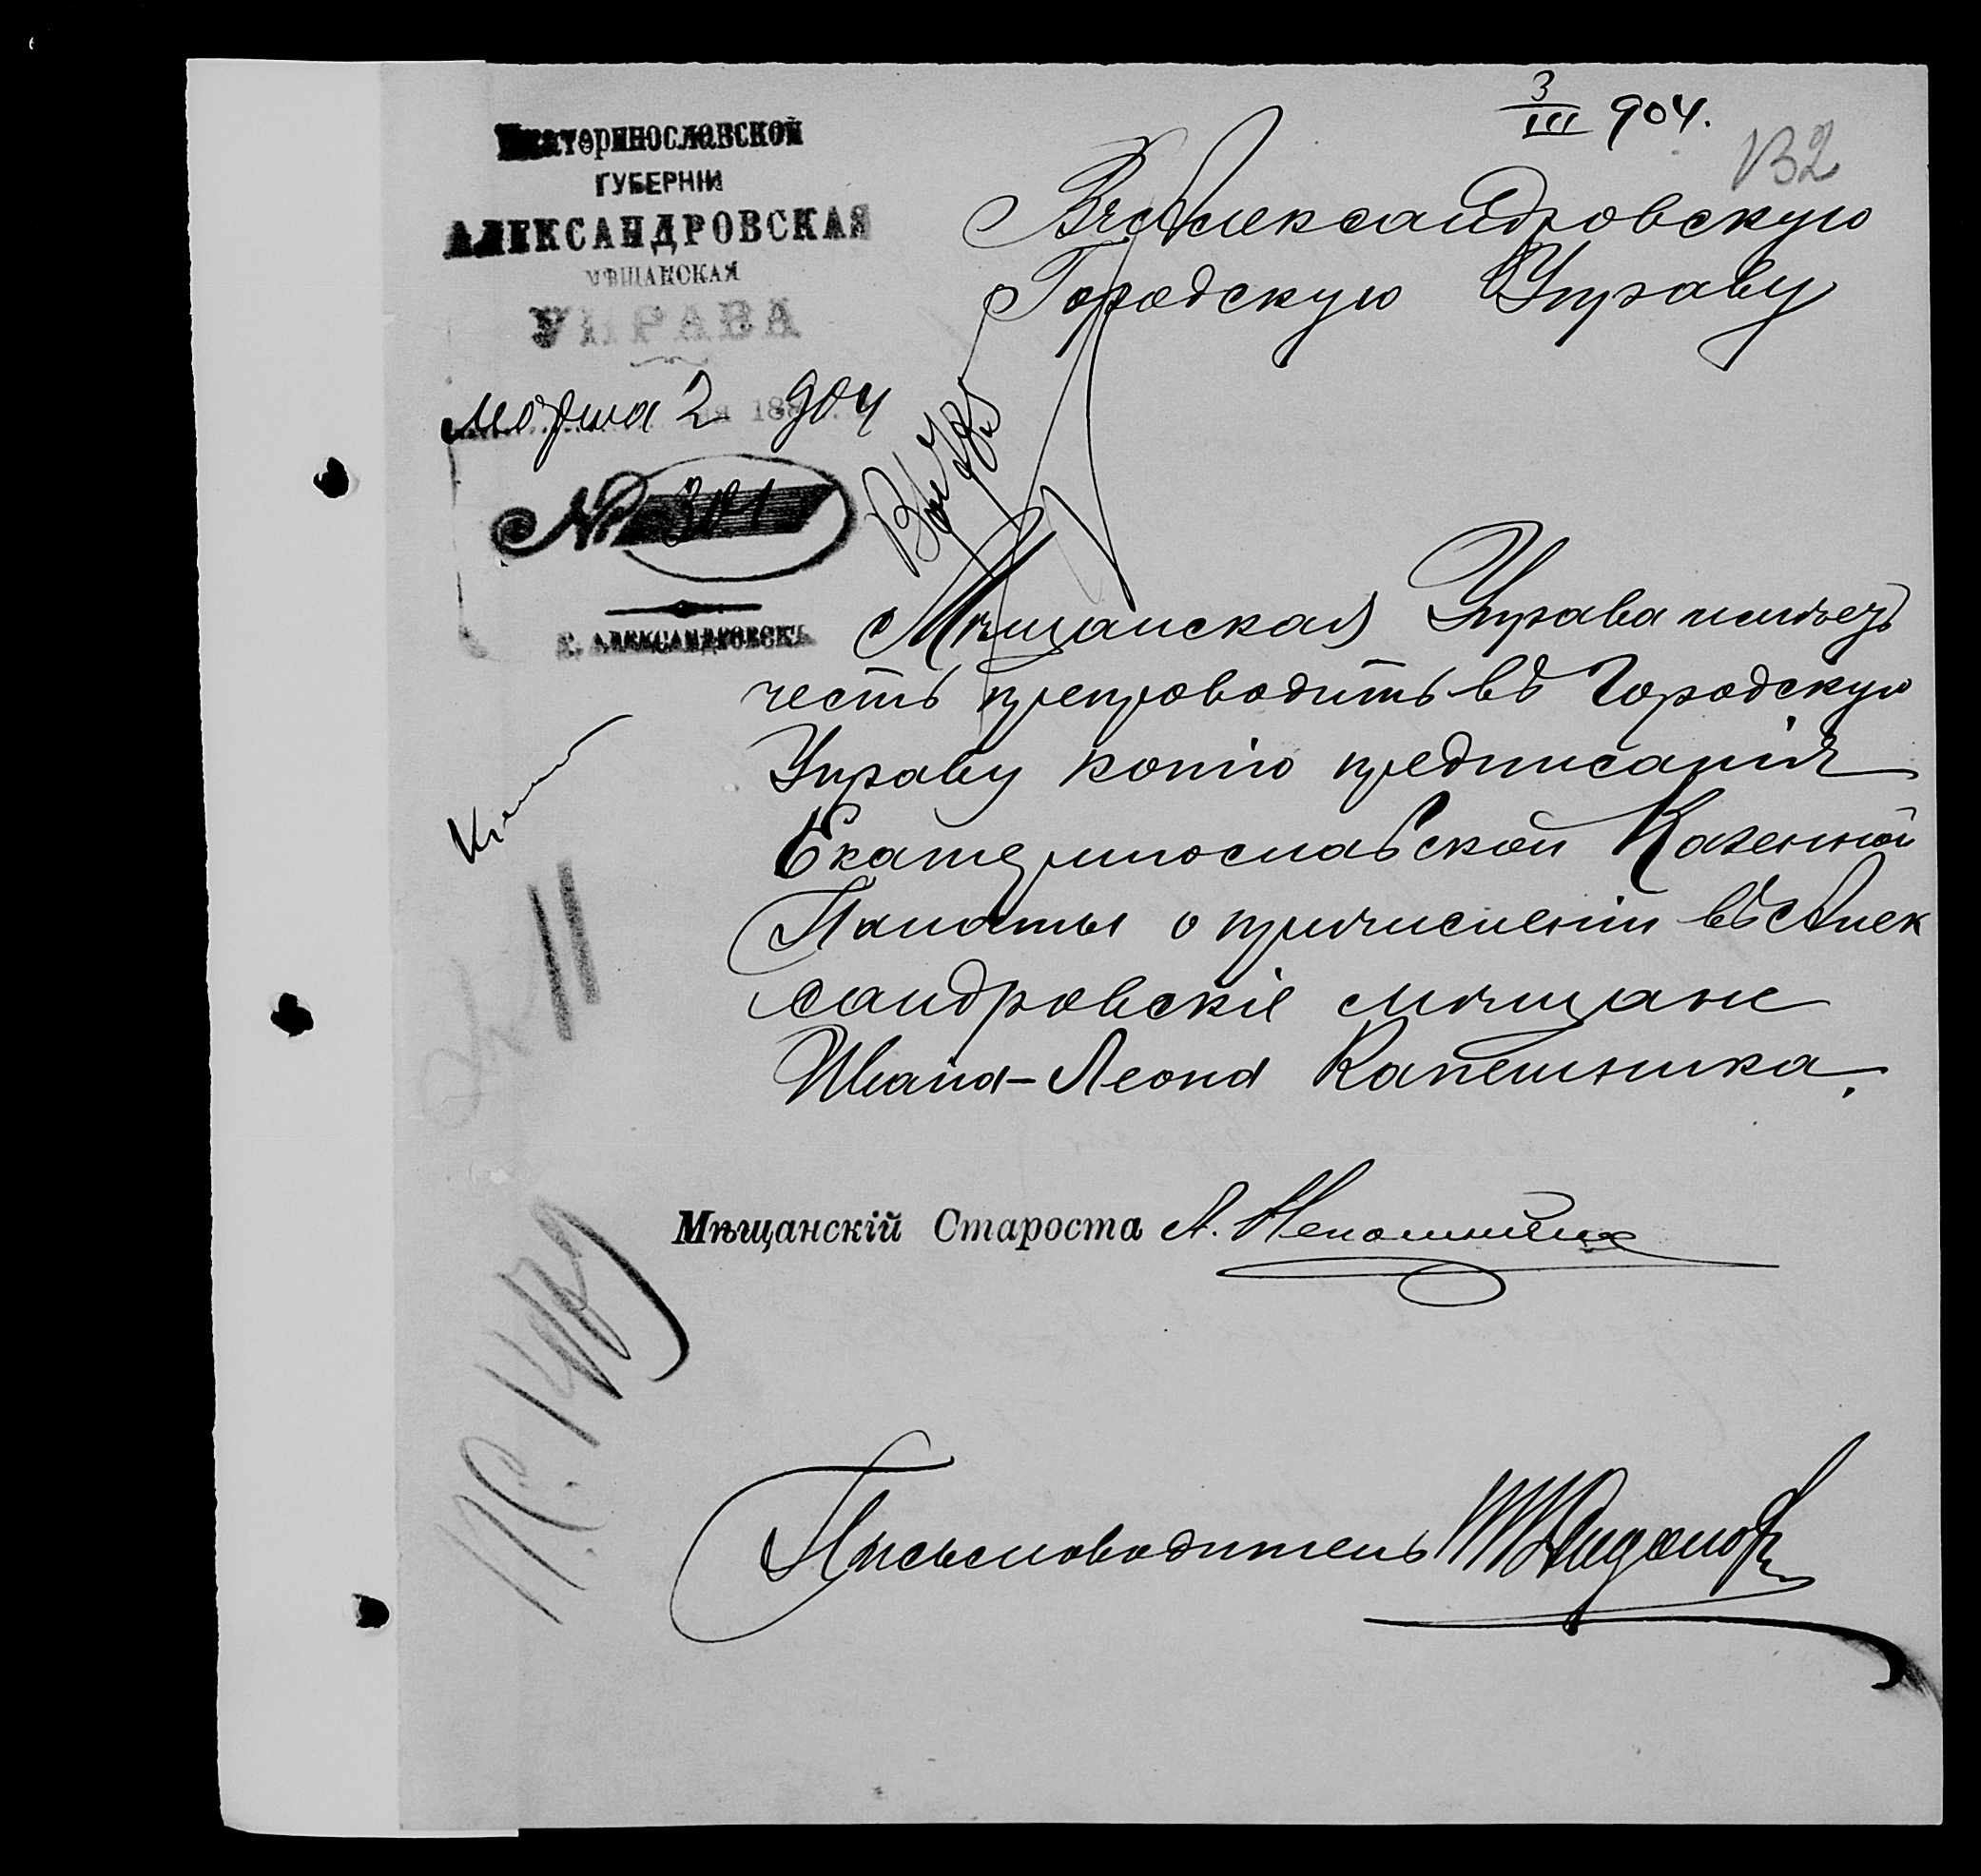 3/III 904.
132
Екатеринославской
ГУБЕРНІИ
АЛЕКСАНДРОВСКАЯ
МѢЩАНСКАЯ
УПРАВА
Марта 2 дня 188 904
№ 301
Г. АЛЕКСАНДРОВСКЪ
Въ Александровскую
Городскую Управу
Мѣщанская Управа имѣетъ
честь препроводить въ Городскую
Управу копію предписанія
Екатеринославской Казенной
Палаты о причисленіи въ Алек
сандровскіе мѣщане
Ивана-Леона Капелюшника.
Мѣщанскій Староста А. Непомнящ
Письмоводитель